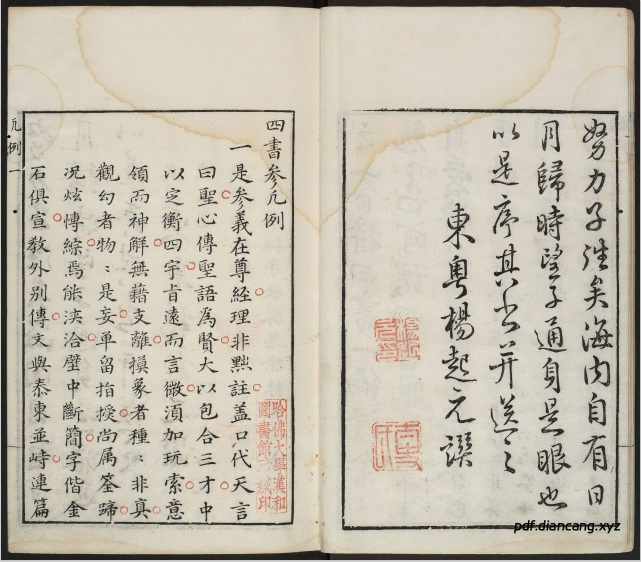 努力子往矣海内自有日
月歸時望子通身是眼也
以是序其公并送之
東粤楊起元譔
四書參凢例
一是參義在尊經理非黜註盖口代天言
曰聖心傳聖語爲賢大以包合三才中
以定衡四字肯遠而言微湏加玩索意
領而神解無藉支離摸象者種〻非真
觀幻者物〻是妄單留指授尚属筌蹄
况炫慱綜焉能浹洽壁中斷簡字偕金
石俱宣敎外别傳文與泰東並峙連篇
凢例
一
哈佛大學漢和
圖書館珍藏印
pdf.diancang.xyz